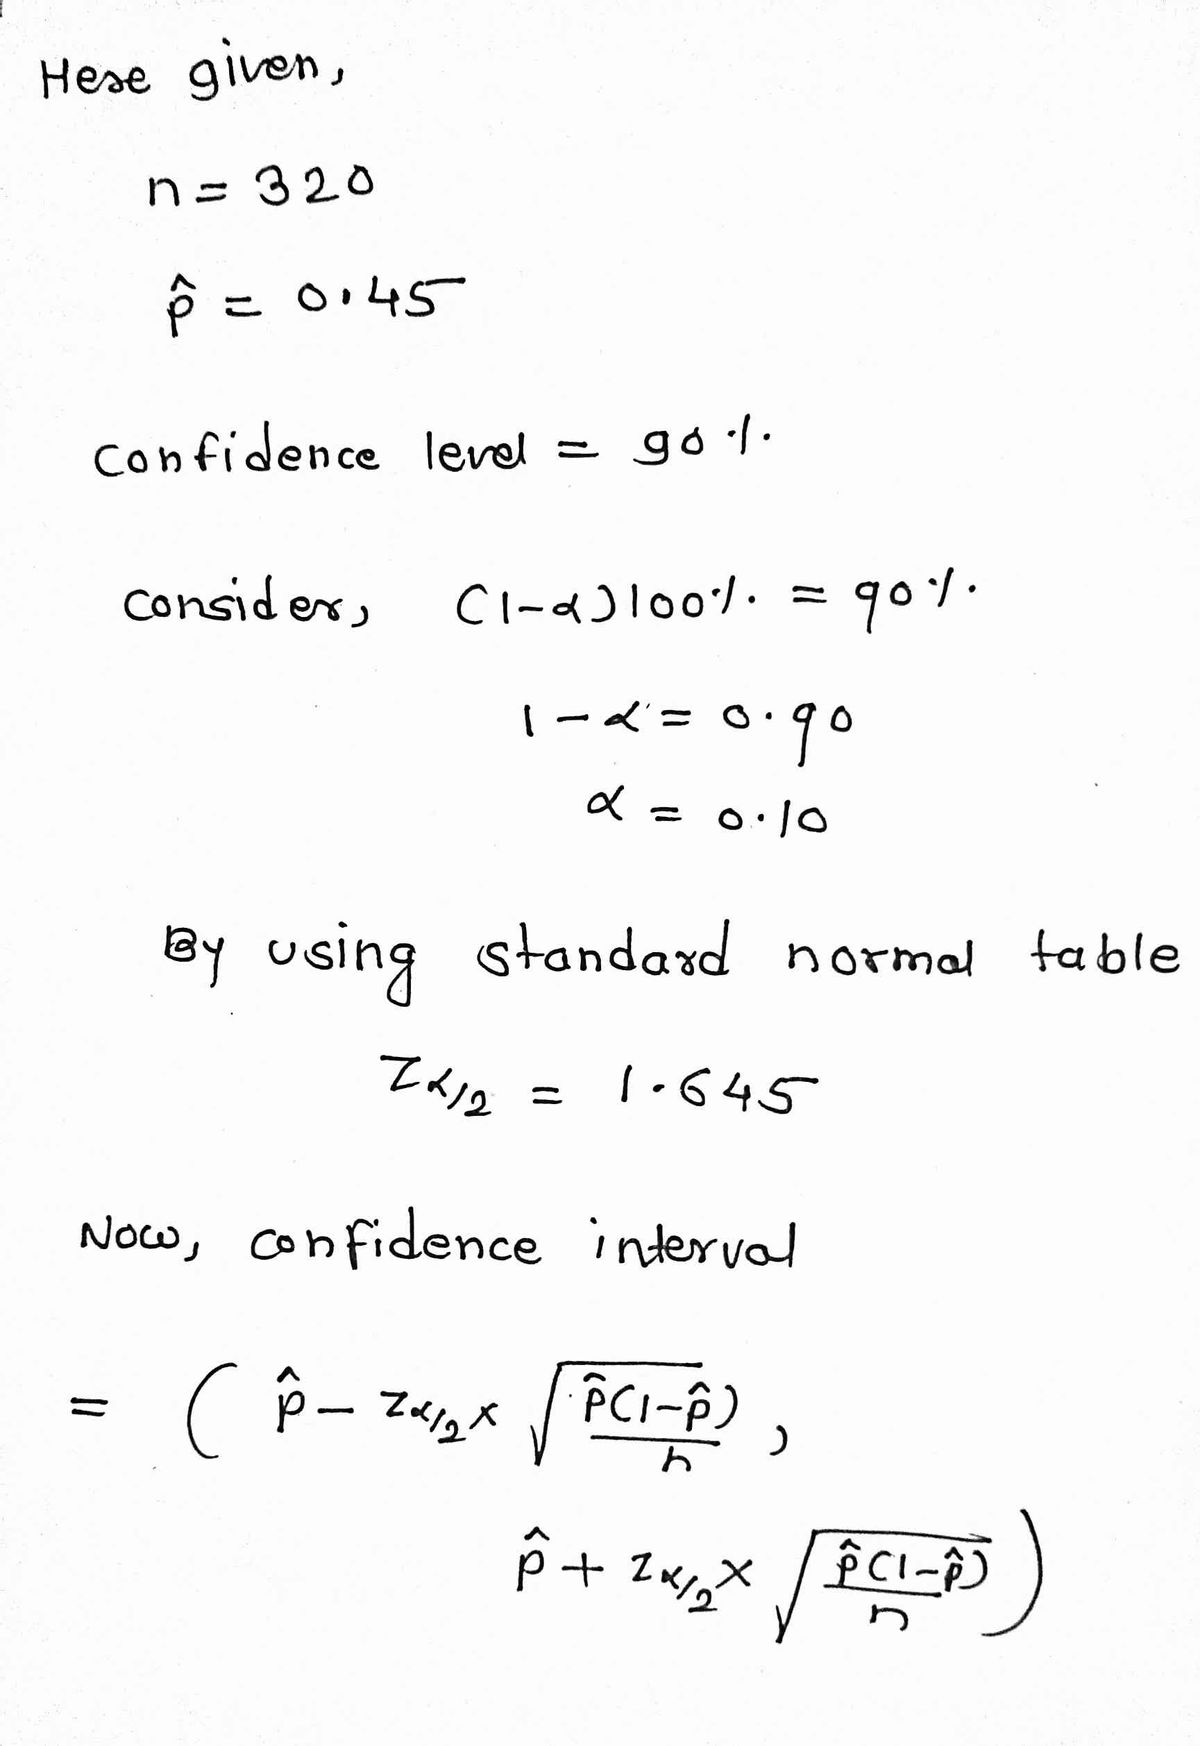 Here given,
n = 320
p̂ = 0.45
confidence level = 90%
consider, (1-α)100% = 90%
1-α = 0.90
α = 0.10
By using standard normal table
Zα/2 = 1.645
Now, confidence interval
= ( p̂ - Zα/2 × √(p̂(1-p̂)/n) ,
p̂ + Zα/2 × √(p̂(1-p̂)/n) )